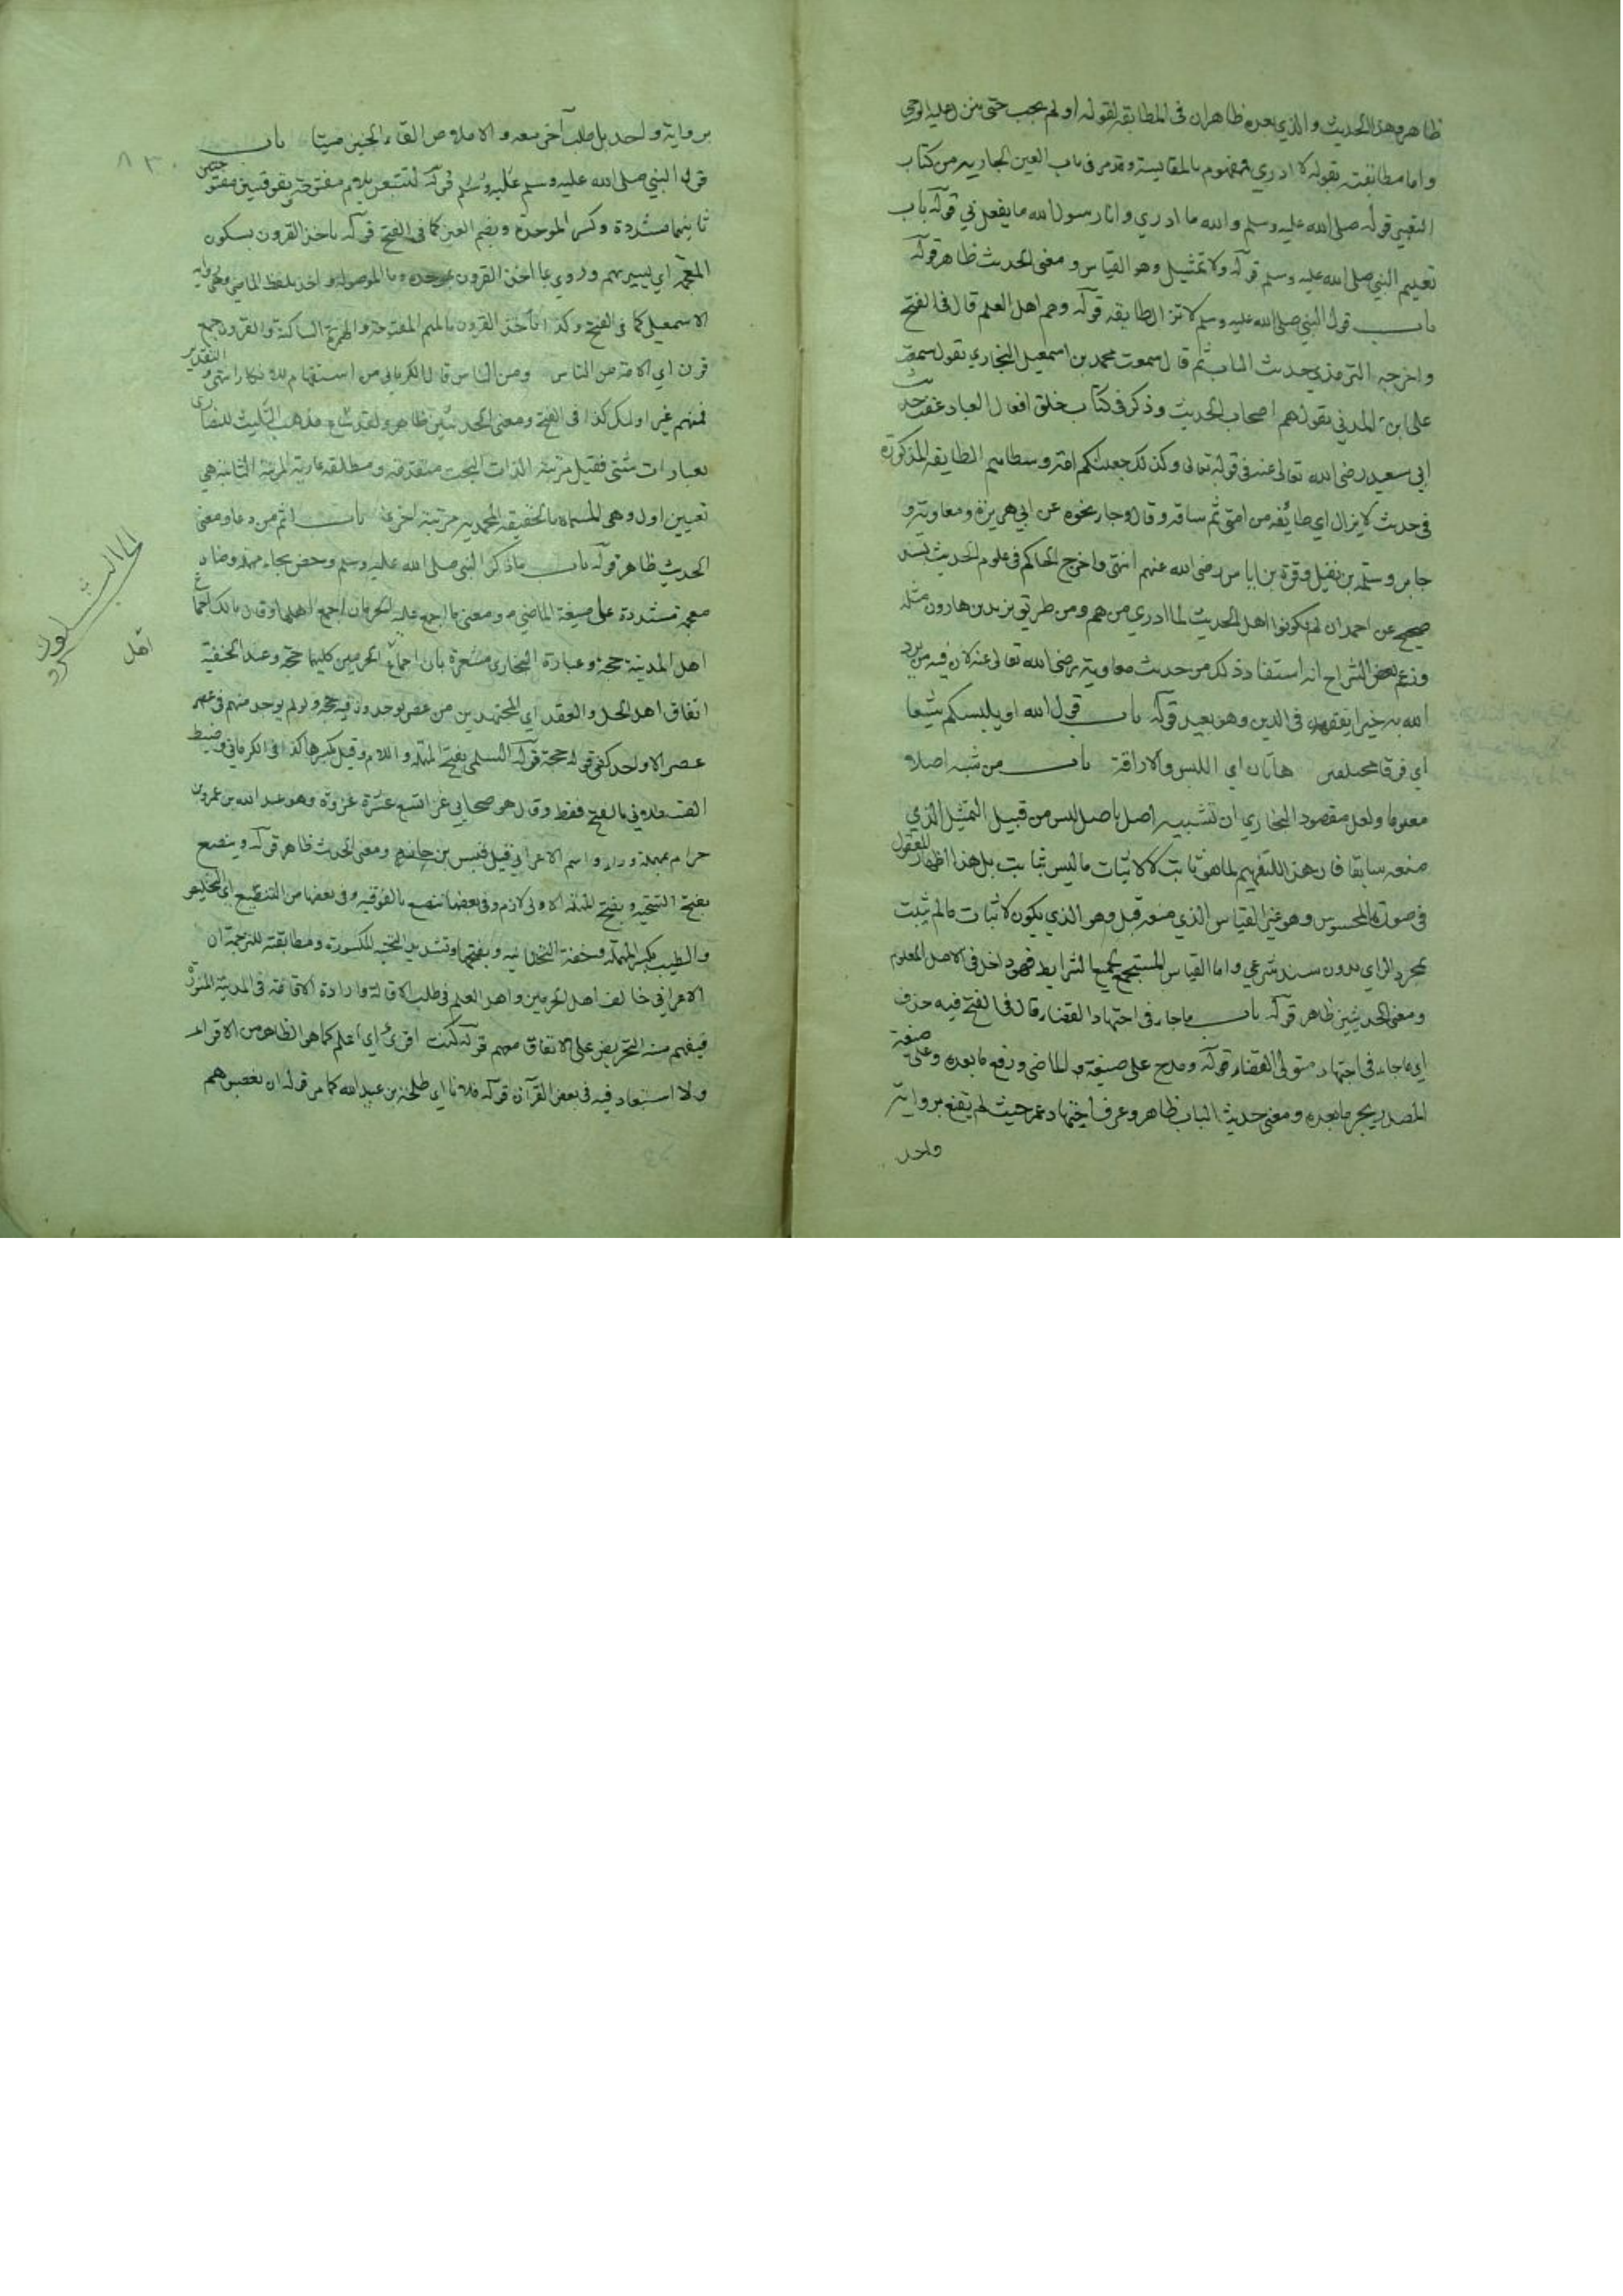 ظاهر وهذا الحديث والذي بعده ظاهران في المطابقة لقوله او لم يجب حتى ينزل عليه الوحي
واما مطابقته بقوله لا ادري فمفهوم بالمقايسة ومر في باب العين الجارية من كتاب
التعبير قوله صلى الله عليه وسلم والله ما ادري وانا رسول الله ما يفعل بي قوله باب
تعليم النبي صلى الله عليه وسلم قوله ولا تمثيل وهو القياس ومعنى الحديث ظاهر قوله
باب قول النبي صلى الله عليه وسلم لا تزال طايفة قوله وهم اهل العلم قال في الفتح
واخرجه الترمذي حديث الباب ثم قال سمعت محمد بن اسمعيل البخاري يقول سمعت
على ابن المديني يقول هم اصحاب الحديث وذكر في كتاب خلق افعال العباد عقب حديث
ابي سعيد رضي الله تعالى عنه في قوله تعالى وكذلك جعلناكم امة وسطا هم الطايفة المذكورة
في حديث لا يزال اي طائفة من امتي ثم ساقه وقال وجاء نحوه عن ابي هريرة ومعاوية و
جابر وسلمة بن نفيل وقرة بن اياس رضي الله عنهم انتهى واخرج الحاكم في علوم الحديث بسند
صحيح عن احمد ان لم يكونوا اهل الحديث فلا ادري من هم ومن طريق يزيد بن هارون مثله
وزعم بعض الشراح انه استفاد ذلك من حديث معاوية رضي الله تعالى عنه لان فيه من يرد
الله به خيرا يفقهه في الدين وهو بعيد قوله باب قول الله او يلبسكم شيعا
اي فرقا مختلفين هاتان اي اللبس والاذاقة باب من شبه اصلا
معلوما ولعل مقصود البخاري ان تشبيه اصل باصل ليس من قبيل التمثيل الذي
منعه سابقا فان هذا لتفهيم لما هو ثابت لا لاثبات ما ليس بثابت بل هذا اظهار للمعقول
في صورة المحسوس وهو غير القياس الذي منعه قبل وهو الذي يكون لاثبات ما لم يثبت
بمجرد الراي بدون سند شرعي واما القياس المستجمع لجميع الشرايط فهو داخل في الاصل المعلوم
ومعنى الحديثين ظاهر قوله باب ما جاء في اجتهاد القضاء قال في الفتح فيه حذف
اي ما جاء في اجتهاد متولي القضاء قوله ومدح على صيغة الماضي ورفع ما بعده وعلى صيغة
المصدر بجر ما بعده ومعنى حديث الباب ظاهر وعرف اجتهاد عمر حيث لم يقنع برواية
واحد
٨٣٠
برواية واحد بل طلب آخر معه والاملاص القاء الجنين ميتا باب
قول النبي صلى الله عليه وسلم قوله لتتبعن بلام مفتوحة بفوقيتين مفتوحتين
ثانيهما مشددة وكسر الموحدة وبضم العين كما في الفتح قوله باخذ القرون بسكون
المعجمة اي بسيرتهم وروي بما اخذ القرون بموحدة وما الموصولة واخذ بلفظ الماضي وهي رواية
الاسمعيلي كما في الفتح وكذا مأخذ القرون بالميم المفتوحة والهمزة الساكنة والقرون جمع
قرن اي الامة من الناس ومن الناس قال الكرماني من استفهام للانكار انتهى والتقدير
فمنهم غير اولئك كذا في الفتح ومعنى الحديثين ظاهر ولقد شاع مذهب التثليث للنصارى
بعبارات شتى فقيل مرتبة الذات البحت
تعيين اول وهي المسماة بالحقيقة المحمدية مرتبة اخرى باب اثم من دعا ومعنى
الحديث ظاهر قوله باب ما ذكر النبي صلى الله عليه وسلم وحض بحاء مهملة وضاد
معجمة مشددة على صيغة الماضي ومعنى ما اجمع عليه الحرمان اجمع اهلهما وقال مالك اجماع
اهل المدينة حجة وعبارة البخاري مشعرة بان اجماع الحرمين كليهما حجة وعند الحنفية
اتفاق اهل الحل والعقد اي المجتهدين من عصر يوجدون فيه حجة ولو لم يوجد منهم في عصر
عصر الا واحد كفى قوله حجة قوله السلمي بفتح المهملة واللام وقيل بكسرها كذا في الكرماني وضبط
القسطلاني بالفتح فقط وقال هو صحابي غزا تسع عشرة غزوة وهو عبد الله بن عمرو بن
حرام بمهملة وراء واسم الاعرابي قيل قيس بن حازم ومعنى الحديث ظاهر قوله وينصع
بفتح التحتية وبفتح المهملة الاولى لازم وفي بعضها تنصع بالفوقية وفي بعضها من التنصيع اي التخليص
والطيب بكسر المهملة وخفة التحتانية وبفتحها وتشديد التحتية المكسورة ومطابقته للترجمة ان
الاعرابي خالف اهل الحرمين واهل العلم في طلب الاقالة وارادة الاقامة في المدينة المنورة
فيفهم منه التحريض على الاتفاق معهم قوله كنت اقرئ اي اعلم كما هو الظاهر من الاقراء
ولا استبعاد فيه في بعض القرآن قوله فلانا اي طلحة بن عبيد الله كما مر قوله ان يغصبوهم
اهل